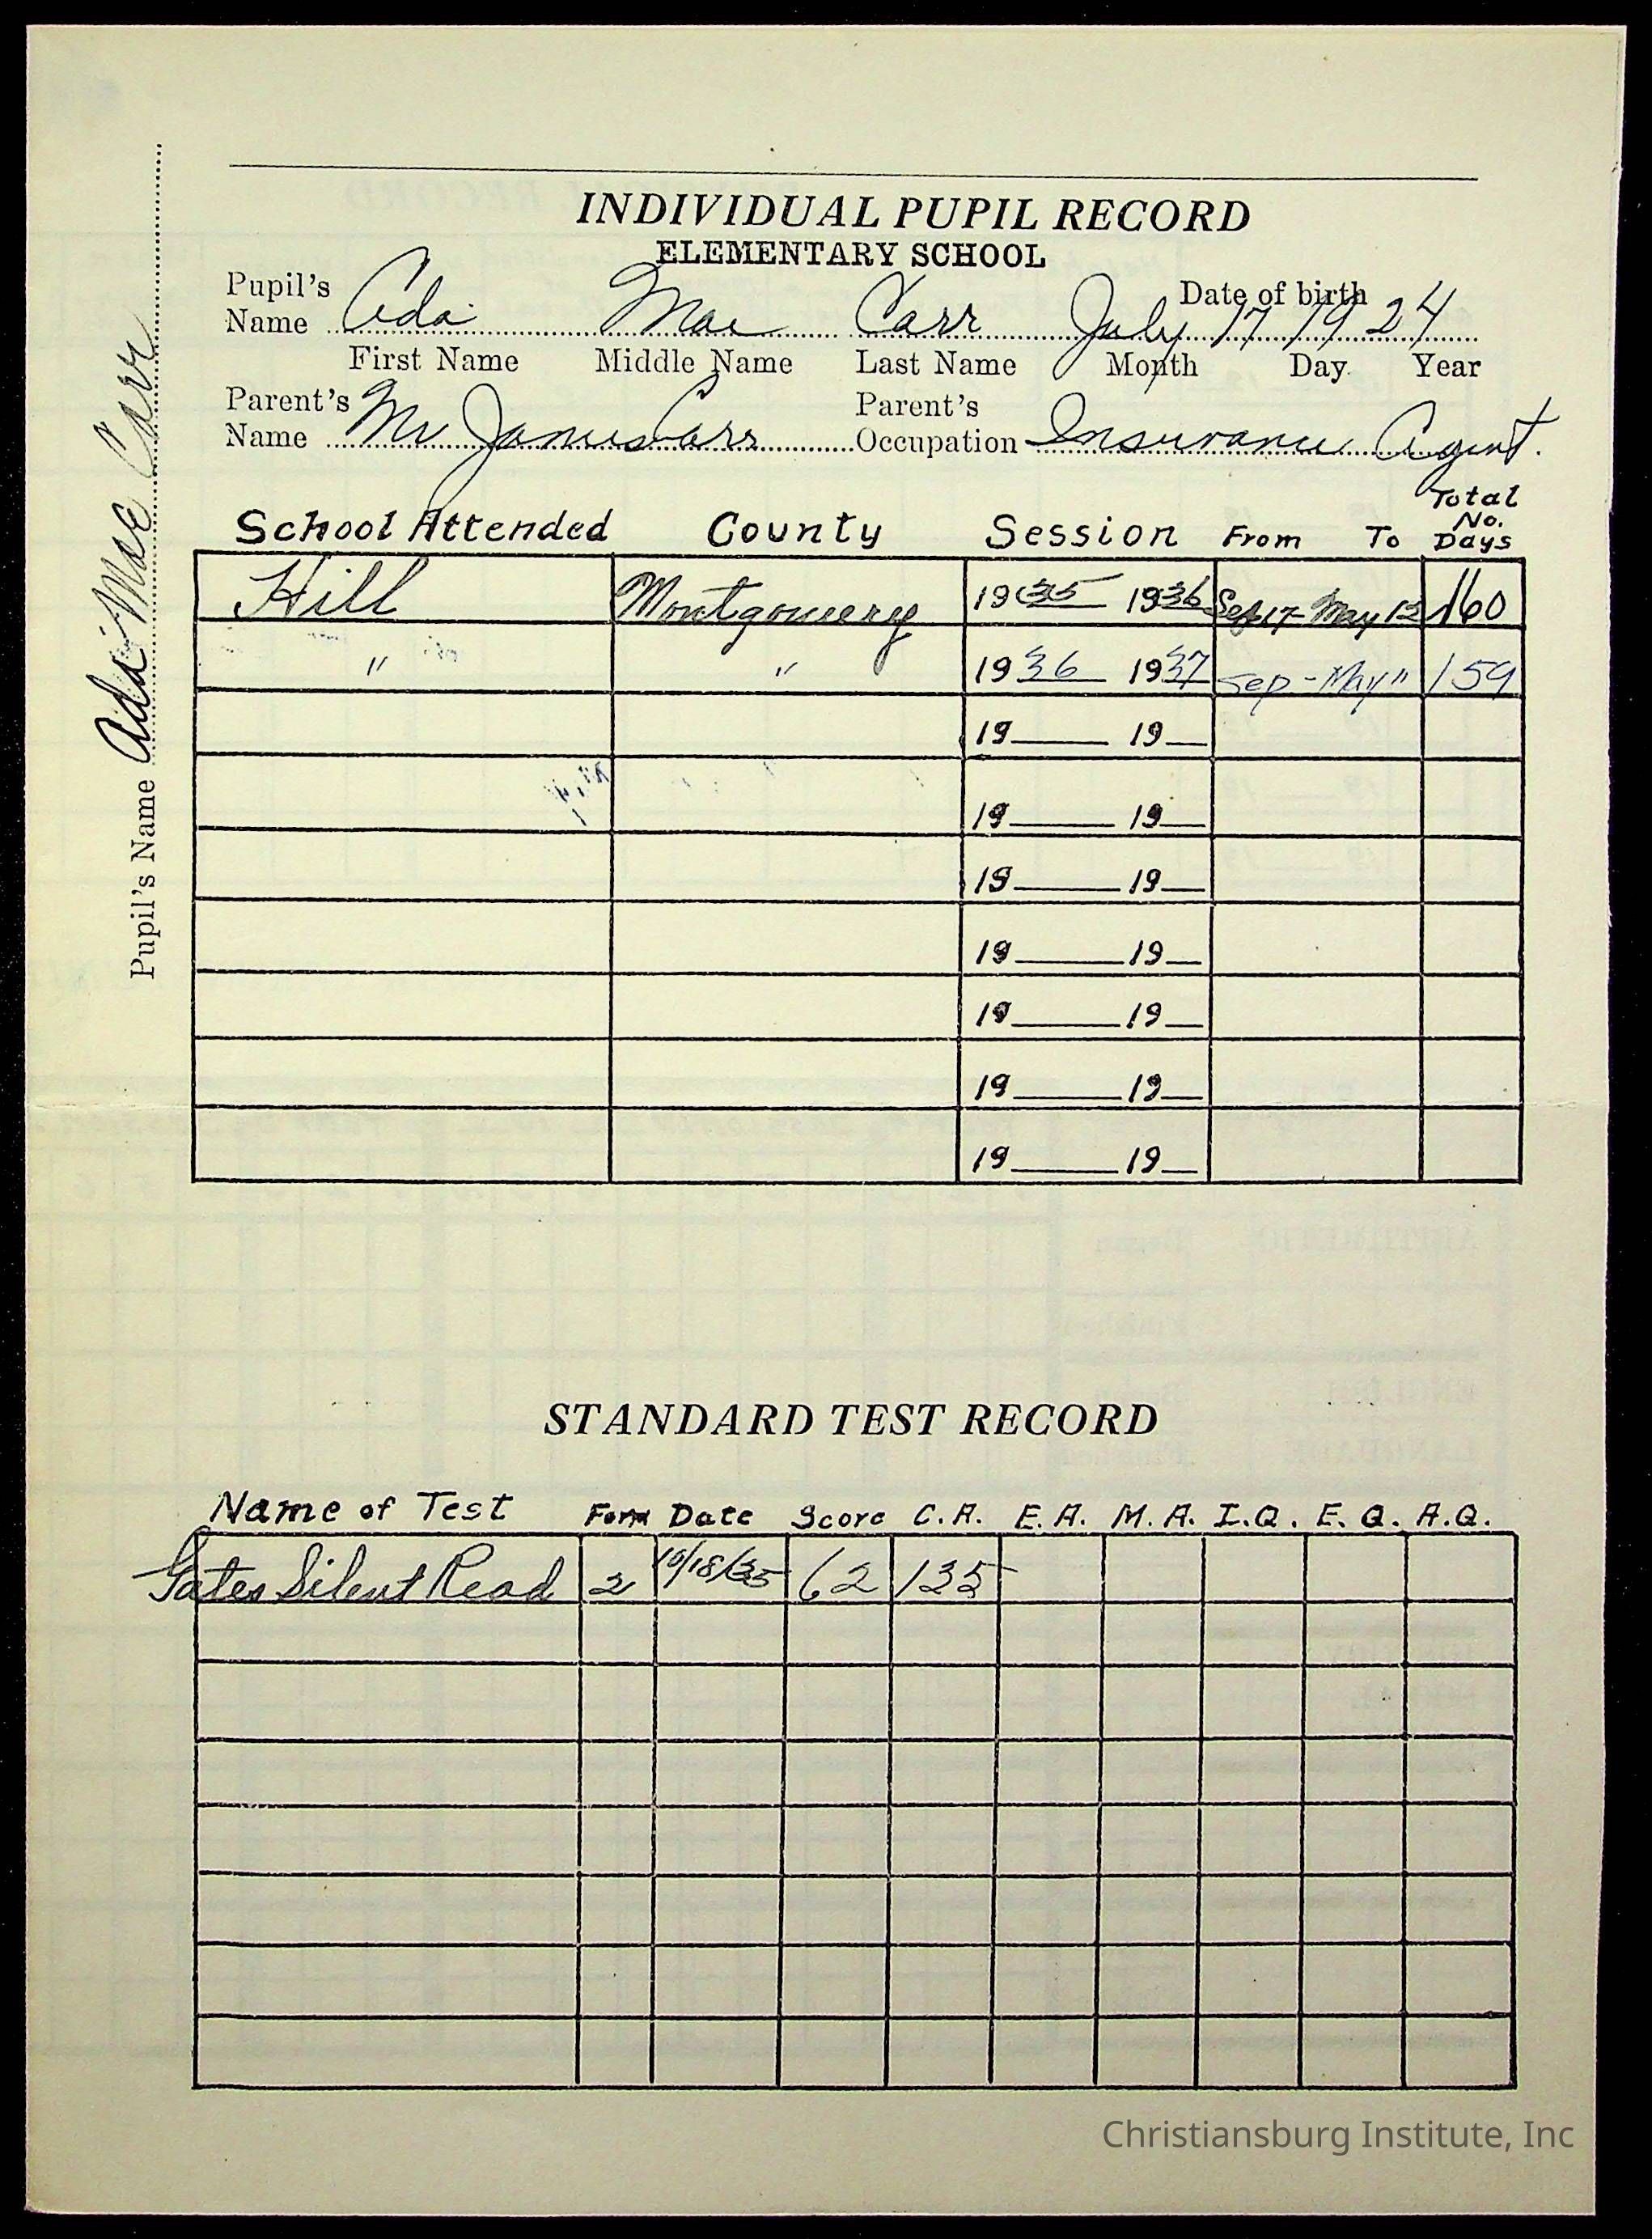 INDIVIDUAL PUPIL RECORD
ELEMENTARY SCHOOL
Pupil's Name Ada Mae Carr Date of birth July 17 1924
First Name Middle Name Last Name Month Day Year
Parent's Name Mr James Carr Parent's Occupation Insurance Agent.
School Attended County Session From To Total No. Days
Hill Montgomery 1935 1936 Sep 17 - May 12 160
" " 1936 1937 Sep - May " 159
19 19
19 19
19 19
19 19
19 19
19 19
19 19
Pupil's Name Ada Mae Carr
STANDARD TEST RECORD
Name of Test Form Date Score C.A. E.A. M.A. I.Q. E.Q. A.Q.
Gates Silent Read 2 10/18/35 62 135
Christiansburg Institute, Inc